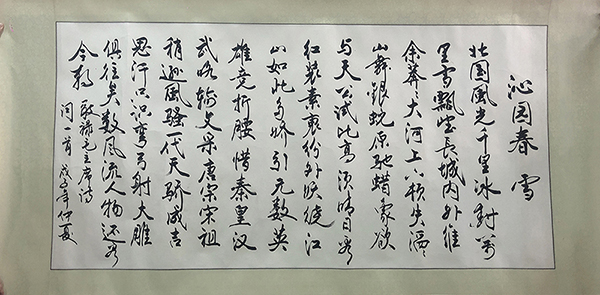 沁园春 雪
北国風光千里冰封萬
里雪飄望長城内外惟
余莽々大河上下頓失滔々
山舞銀蛇原馳蜡象欲
与天公試比高须晴日看
红装素裹纷外妖娆江
山如此多娇引无数英
雄竞折腰惜秦皇汉
武略输文采唐宗宋祖
稍逊風骚一代天骄成吉
思汗只识弯弓射大雕
俱往矣数風流人物还看
今朝 敬禄毛主席诗
词一首 戊子年仲夏